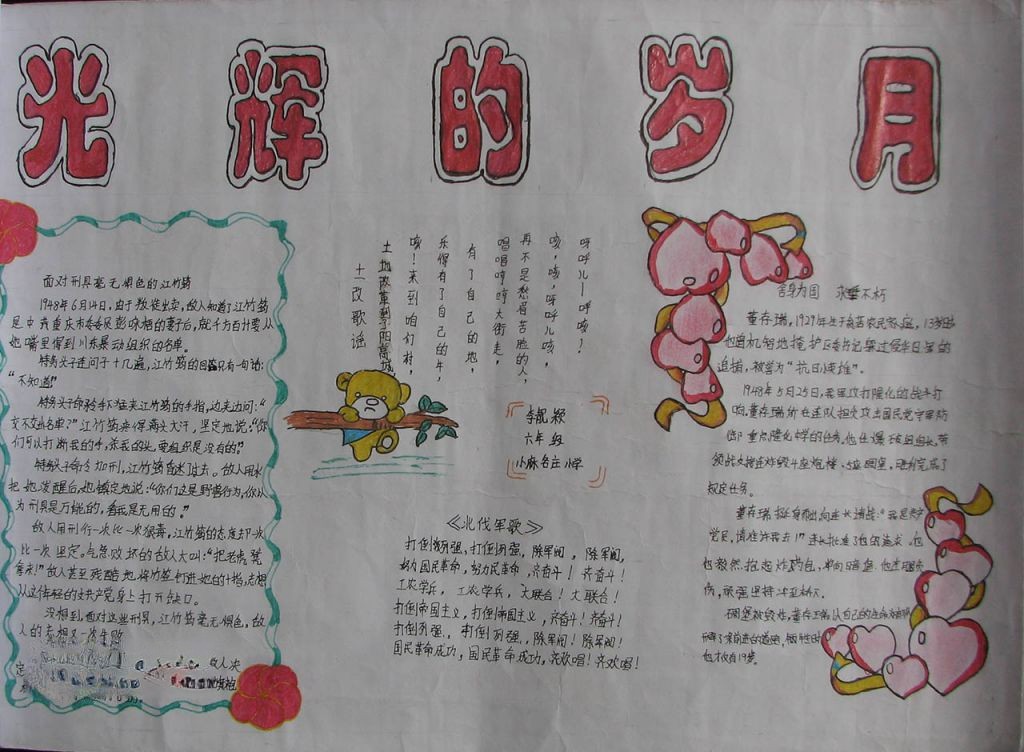 光辉的岁月
面对刑具毫无惧色的江竹筠
1948年6月14日,由于叛徒出卖,敌人知道了江竹筠
是中共重庆市委委员彭咏梧的妻子后,就千方百计要从
她嘴里得到川东暴动组织的名单。
特务头子连问了十几遍,江竹筠的回答只有一句话:
“不知道!”
特务头子命令打手猛夹江竹筠的手指,边夹边问:“
交不交出名单?”江竹筠夹得满头大汗,坚定地说:“你
们可以打断我的手,杀我的头,要组织是没有的。”
特务头子命令加刑,江竹筠昏迷过去。敌人用水
把她泼醒后,她镇定地说:“你们这是野兽行为,你以
为刑具是万能的,看我是无用的。”
敌人用刑一次比一次狠毒,江竹筠的态度却一次
比一次坚定。气急败坏的敌人大叫:“把老虎凳
拿来!”敌人甚至残酷地将竹签钉进她的十指,妄想
从这个年轻的共产党身上打开缺口。
没想到,面对这些刑具,江竹筠毫无惧色,敌
人的妄想又一次失败
土改歌谣
土地改革到了阳高城
咳!来到咱们村,
乐得有了自己的牛,
有了自己的地,
唱唱哼哼大街走,
再不是愁眉苦脸的人,
咳,咳,呀呼儿咳,
呀呼儿一呼咳!
李靓颖
六年级
小麻名庄小学
《北伐军歌》
打倒列强,打倒列强,除军阀,除军阀,
努力国民革命,努力国民革命,齐奋斗!齐奋斗!
工农学兵,工农学兵,大联合!大联合!
打倒帝国主义,打倒帝国主义,齐奋斗!齐奋斗!
打倒列强,打倒列强,除军阀!除军阀!
国民革命成功,国民革命成功,齐欢唱!齐欢唱!
舍身为国 永垂不朽
董存瑞,1929年生于贫苦农民家庭,13岁时
他曾机智地掩护区委书记躲过侵华日军的
追捕,被誉为“抗日英雄”。
1948年5月25日,我军攻打隆化的战斗打
响。董存瑞所在连队担负攻击国民党守军防
御重点隆化中学的任务。他任爆破组组长,带
领战友接连炸毁4座炮楼、5座碉堡,顺利完成了
规定任务。
董存瑞挺身而出向连长请战:“我是共产
党员,请准许我去!”连长批准了他的请求,他
毅然抱起炸药包,冲向暗堡
伤,顽强坚持冲至桥下。
碉堡被炸毁,董存瑞以自己的生命为部队
开辟了前进的道路,牺牲时
他才仅有19岁。